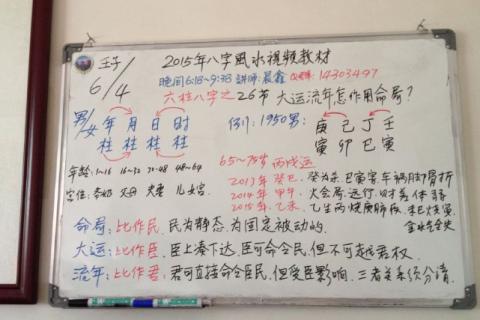 壬子
6/4
2015年八字風水視頻教材
晚间6:18~9:38 講师:晨鑫 QQ群:14303497
六柱八字之26节 大运流年怎作用命局?
男/女 年月日时
柱柱柱柱
例:1950男: 庚己丁壬
寅卯巳寅
年龄:1~16 16~32 32~48 48~64
宫位:爷奶 父母 夫妻 儿女宫
65~75岁 丙戌运
2013年 癸巳.
2014年 甲午.
2015年 乙未.
命局:比作民,民为静态,为固定被动的.
大运:比作臣,臣上奏下达,臣可命令民,但不可越君权.
流年:比作君,君可直接命令臣民,但受臣影响.三者关系统分清.